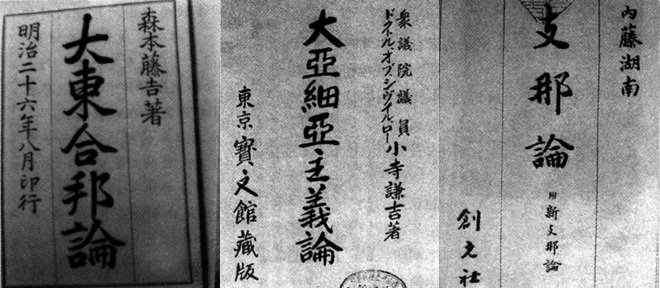 森本藤吉著
大東合邦論
明治二十六年八月印行
衆議院議員
ドクトル、オブ、シヴィル、ロー
小寺謙吉著
大亞細亞主義論
東京寶文館藏版
内藤湖南
支那論
附新支那論
創元社